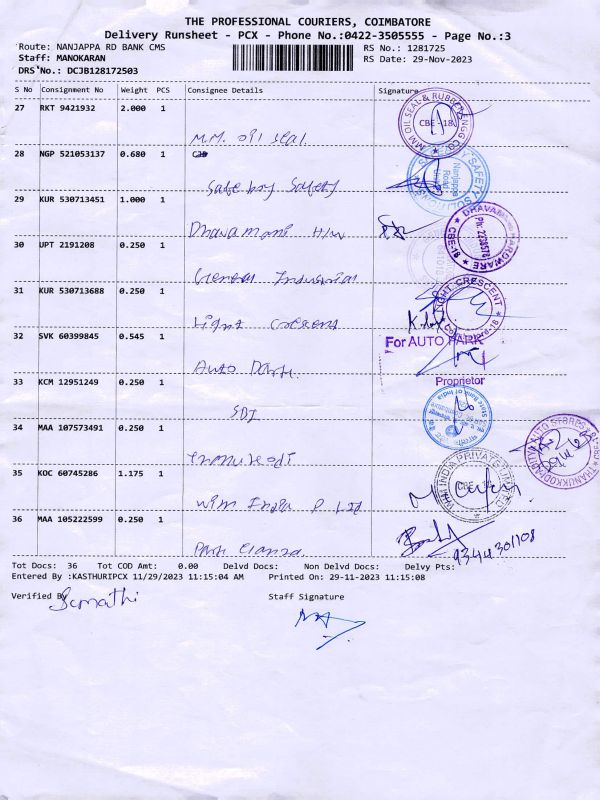 THE PROFESSIONAL COURIERS, COIMBATORE
Delivery Runsheet - PCX - Phone No.:0422-3505555 - Page No.:3
Route: NANJAPPA RD BANK CMS RS No.: 1281725
Staff: MANOKARAN RS Date: 29-Nov-2023
DRS No.: DCJB128172503
S No Consignment No Weight PCS Consignee Details Signature
27 RKT 9421932 2.000 1
M.M. oil seal
28 NGP 521053137 0.680 1
Safety
29 KUR 530713451 1.000 1
Dhavamani H/W
30 UPT 2191208 0.250 1
General Industrial
31 KUR 530713688 0.250 1
Light Crescent
32 SVK 60399845 0.545 1
For AUTO PARK
Auto Park
33 KCM 12951249 0.250 1
Proprietor
SBI
34 MAA 107573491 0.250 1
35 KOC 60745286 1.175 1
India P Ltd
36 MAA 105222599 0.250 1
9344301108
Tot Docs: 36 Tot COD Amt: 0.00 Delvd Docs: Non Delvd Docs: Delvy Pts:
Entered By :KASTHURIPCX 11/29/2023 11:15:04 AM Printed On: 29-11-2023 11:15:08
Verified By Staff Signature